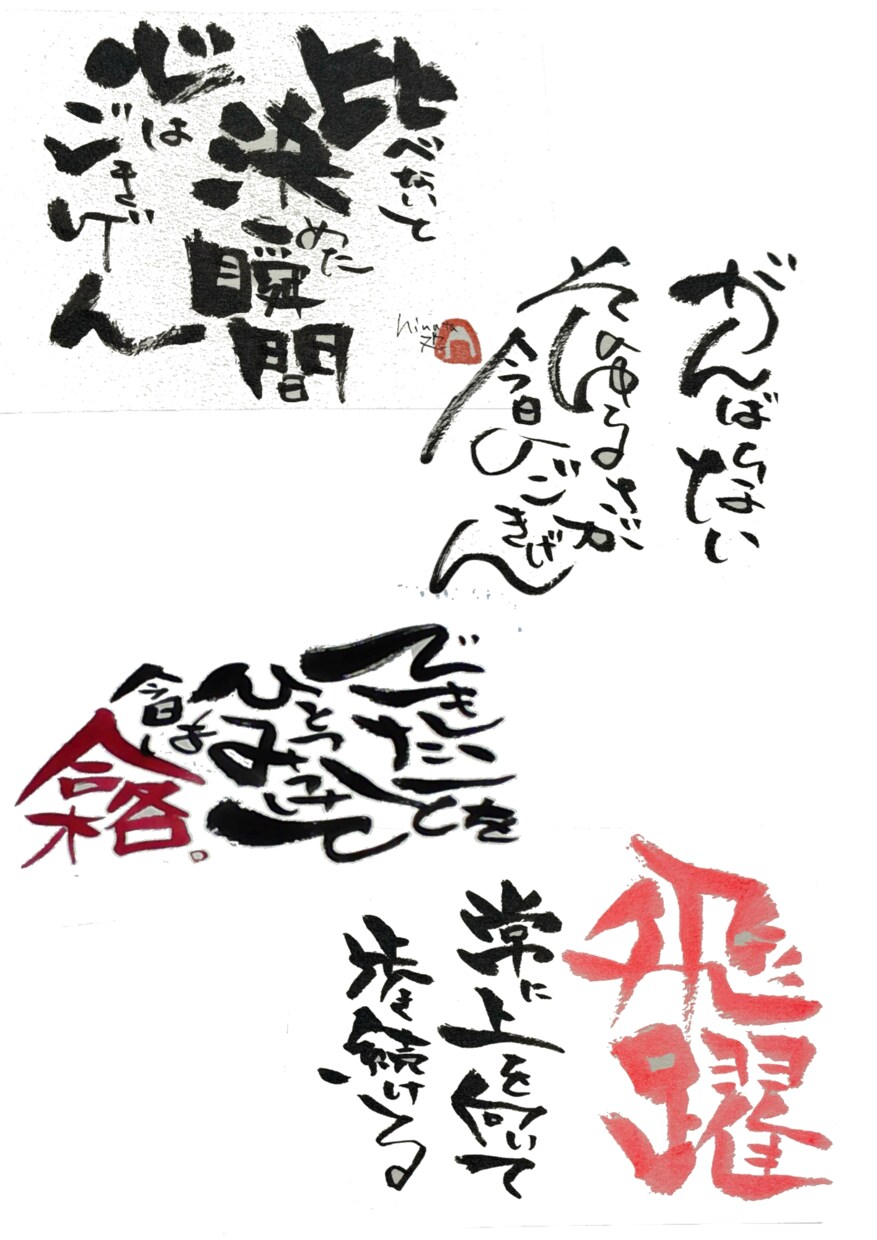 比べないと
決めた瞬間
心は
ごきげん
hinata
がんばらない
そのゆるさが
今日のごきげん
できたことを
ひとつみつけて
今日は
合格。
飛躍
常に上を向いて
歩き続ける